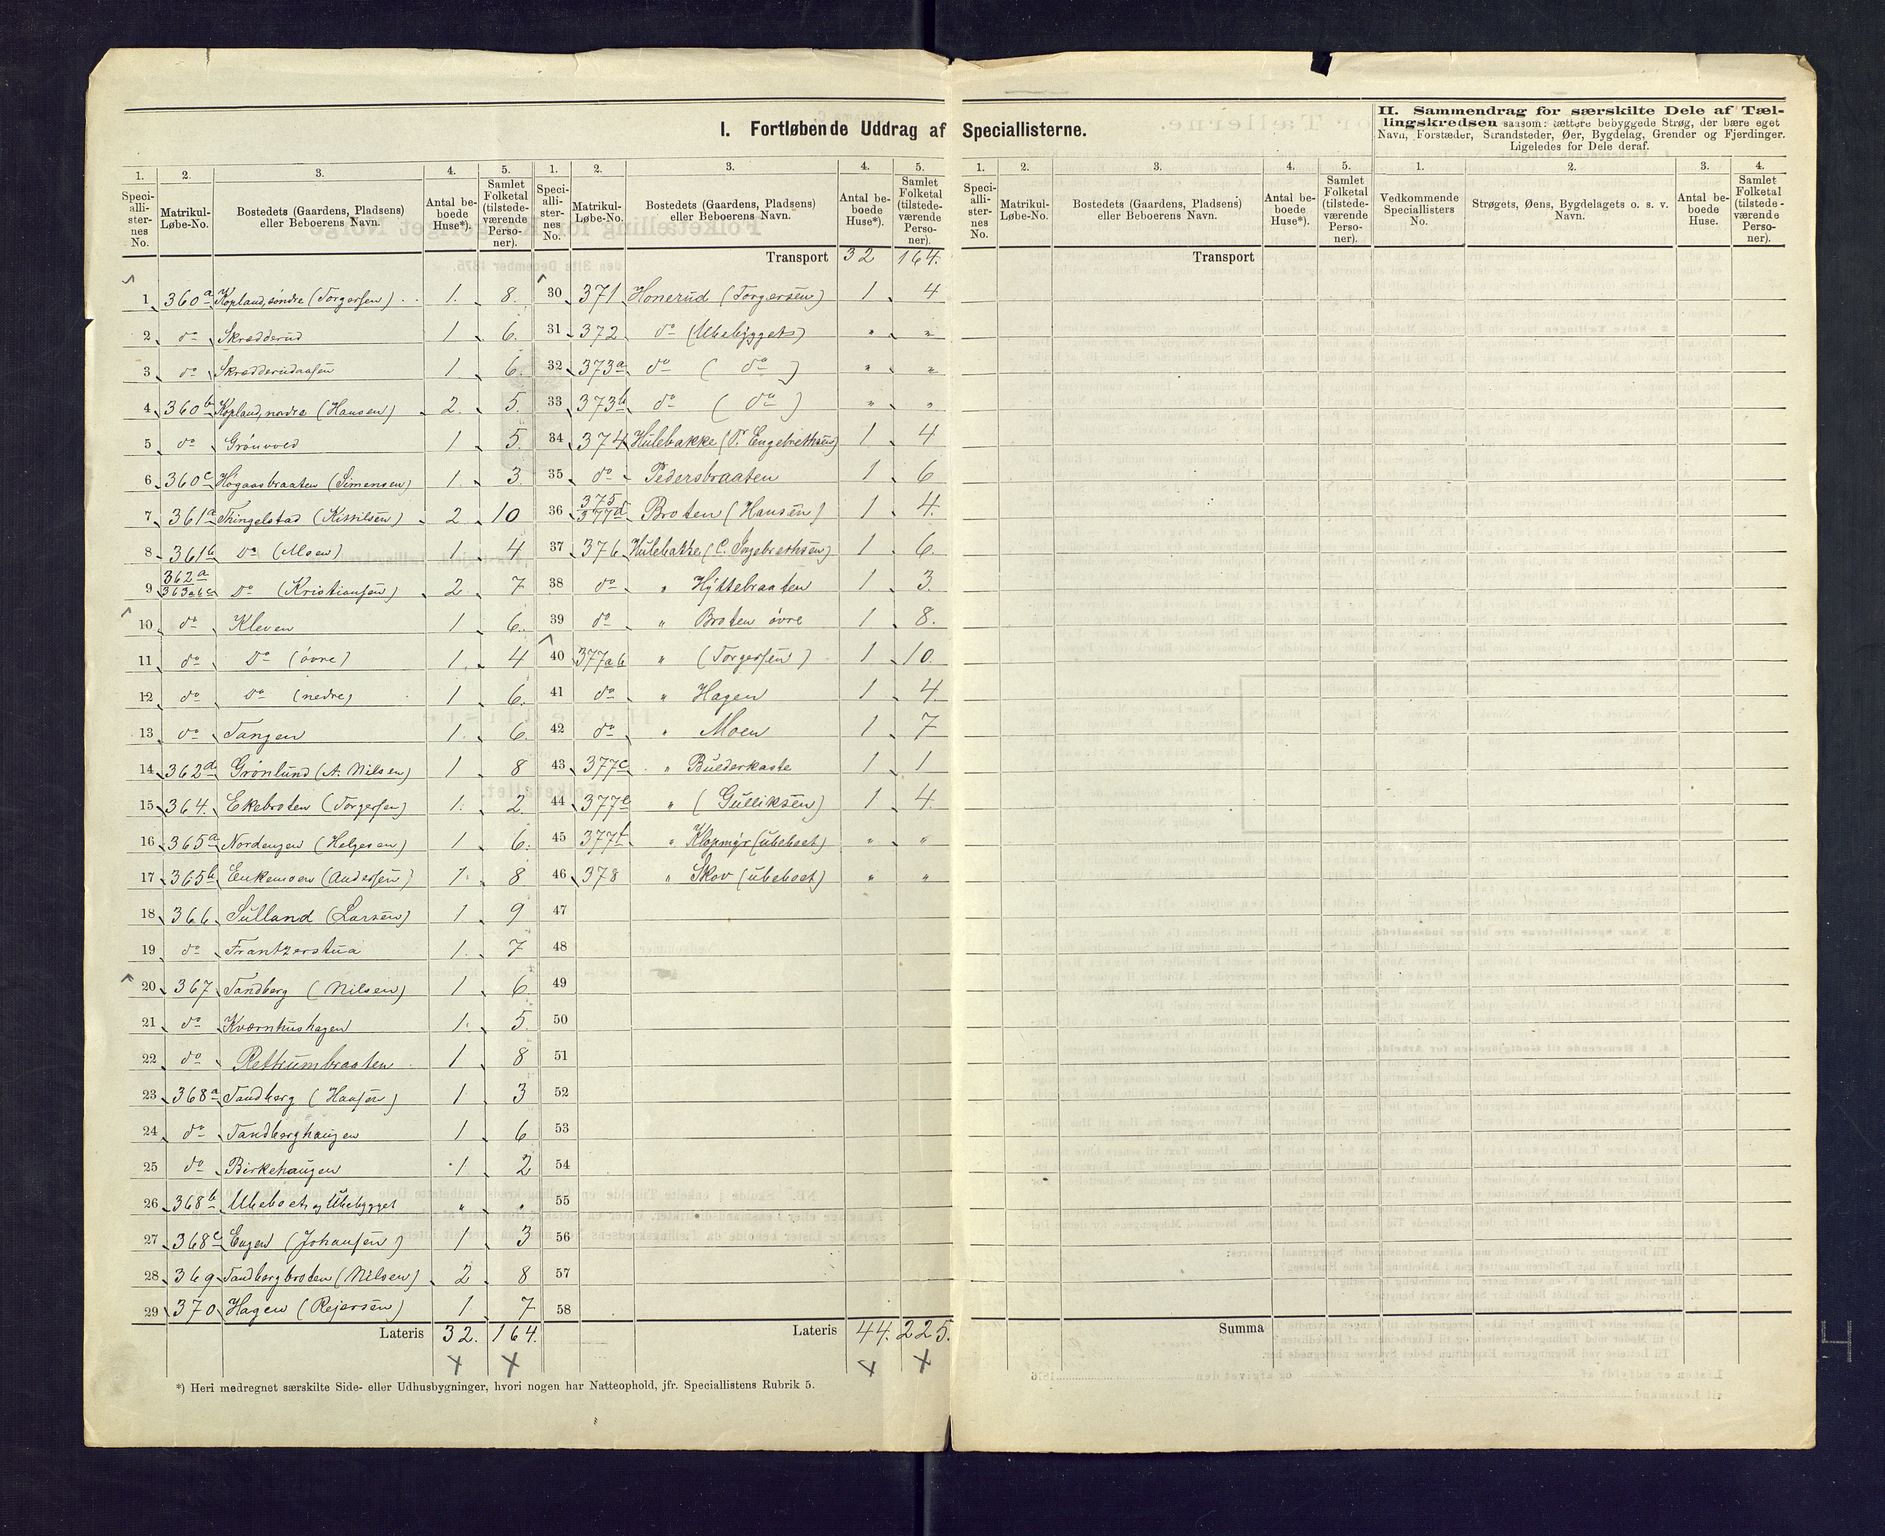 I. Fortløbende Uddrag af Speciallisterne.
II. Sammendrag for særskilte Dele af Tæl-
lingskredsen saasom: tættere bebyggede Strøg, der bære eget
Navn, Forstæder, Strandsteder, Øer, Bygdelag, Grender og Fjerdinger.
Ligeledes for Dele deraf.
1. 2. 3. 4. 5. 1. 2. 3. 4. 5. 1. 2. 3. 4. 5. 1. 2. 3. 4.
Speciallisternes No. Matrikul-Løbe-No. Bostedets (Gaardens, Pladsens) eller Beboerens Navn. Antal beboede Huse*). Samlet Folketal (tilstedeværende Personer).
Speciallisternes No. Matrikul-Løbe-No. Bostedets (Gaardens, Pladsens) eller Beboerens Navn. Antal beboede Huse*). Samlet Folketal (tilstedeværende Personer).
Speciallisternes No. Matrikul-Løbe-No. Bostedets (Gaardens, Pladsens) eller Beboerens Navn. Antal beboede Huse*). Samlet Folketal (tilstedeværende Personer).
Vedkommende Speciallisters No. Strøgets, Øens, Bygdelagets o. s. v. Navn. Antal beboede Huse. Samlet Folketal (tilstedeværende Personer).
1 360a Kopland, søndre (Torgersen) 1. 8.
2 do Skrædderud 1 6.
3 do Skrædderudaasen 1. 6.
4 360b Kopland, nordre (Hansen) 2. 5.
5 do Grønvold 1 5.
6 360c Høgaasbraaten (Simensen) 1. 3.
7 361a Thingelstad (Kittilsen) 2 10
8 361b Do (Moen) 1. 4
9 362a 363abc Do (Kristiansen) 2. 7
10 do Kleven 1 6.
11 do Do (øvre) 1. 4
12 do Do (nedre) 1 6.
13 do Tangen 1. 6.
14 362d Grønlund (A. Nilsen) 1 8
15 364. Ekebroten (Torgersen) 1. 2.
16 365a Nordengen (Helgesen) 1 6.
17 365b Enkemoen (Andersen) 1. 8
18 366 Sulland (Larsen) 1. 9
19 do Frantzerstua 1. 7
20 367 Tandberg (Nilsen) 1 6
21 do Kværnhushagen 1. 5.
22 do Rettrumbraaten 1 8
23 368a Tandberg (Hansen) 1. 3
24 do Tandberghaugen 1 6
25 do Birkehaugen 1 2
26 368b Ubeboet og Ubebygget " "
27 368c Engen (Johansen) 1 3
28 369 Tandbergbroten (Nilsen) 2 8
29 370 Hagen (Rejersen) 1 7
Lateris 32. 164.
Transport 32 164.
30 371 Honerud (Torgersen) 1 4
31 372 do (Ubebygget) " "
32 373a do ( do ) " "
33 373b do ( do ) " "
34 374 Hulebakke (P. Engebrethsen) 1 4
35 do Pedersbraaten 1 6
36 375 377d Broten (Hansen) 1 4.
37 376 Hulebakke (C. Ingebrethsen) 1 6.
38 do " Hyttebraaten 1 3.
39 do " Broten øvre 1 8.
40 377ab " (Torgersen) 1 10.
41 do " Hagen 1 4.
42 do " Moen 1 7
43 377c " Bulderkaste 1 1
44 377e " (Gulliksen) 1 4.
45 377f " Klopmyr (ubeboet) " "
46 378 " Skov (ubeboet) " "
47
48
49
50
51
52
53
54
55
56
57
58
Lateris 44. 225.
Transport
Summa
*) Heri medregnet særskilte Side- eller Udhusbygninger, hvori nogen har Natteophold, jfr. Speciallistens Rubrik 5.